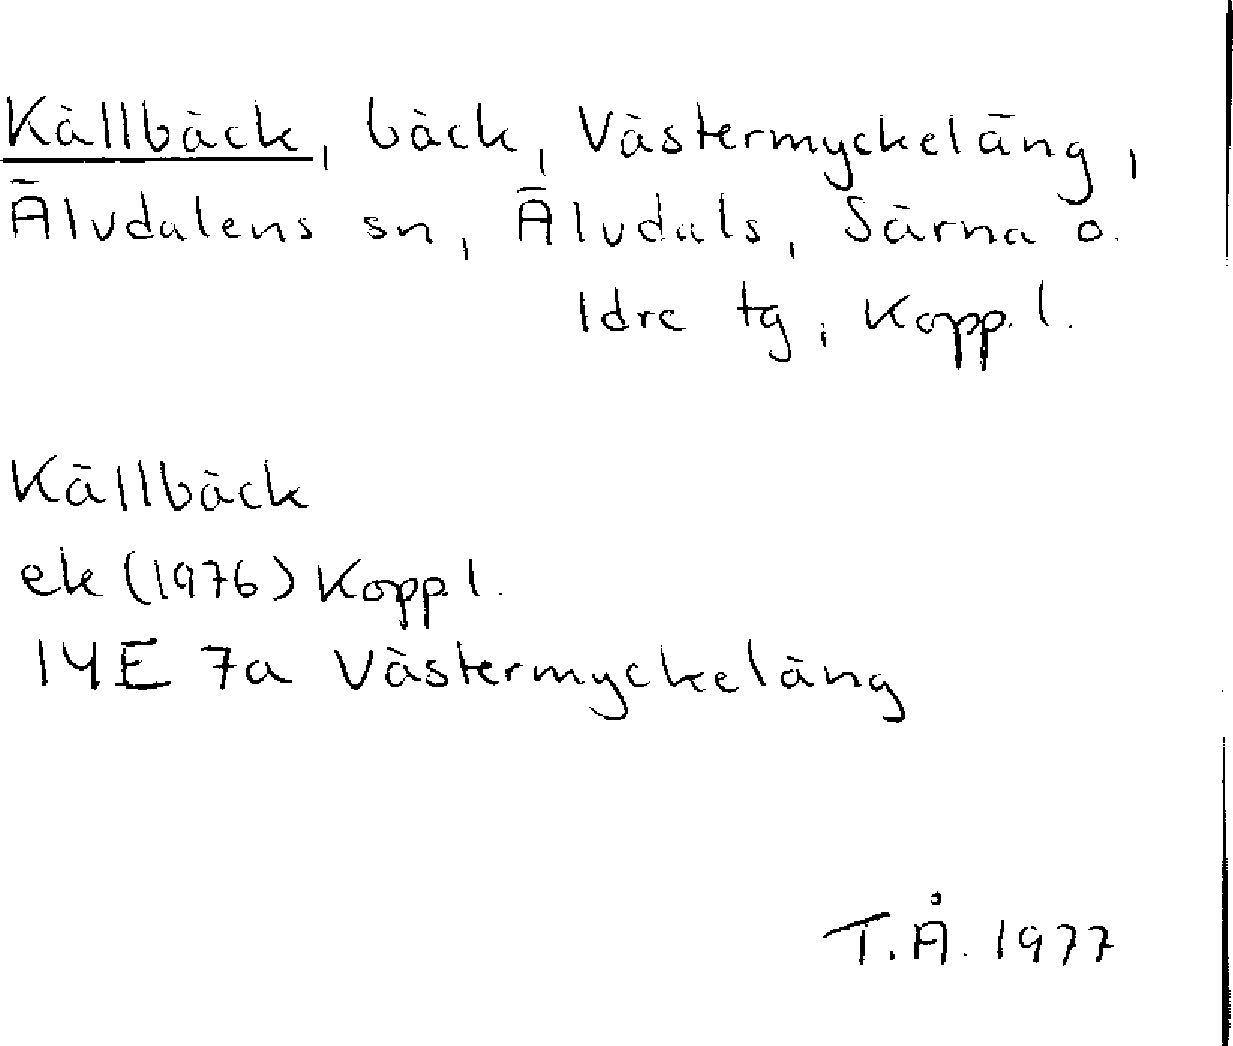 Källbäck, bäck, Västermyckeläng,
Älvdalens sn, Älvdals, Särna o.
Idre tg, Kopp.l.
Källbäck
ek (1976) Kopp l.
14E 7a Västermyckeläng
T.Å. 1977